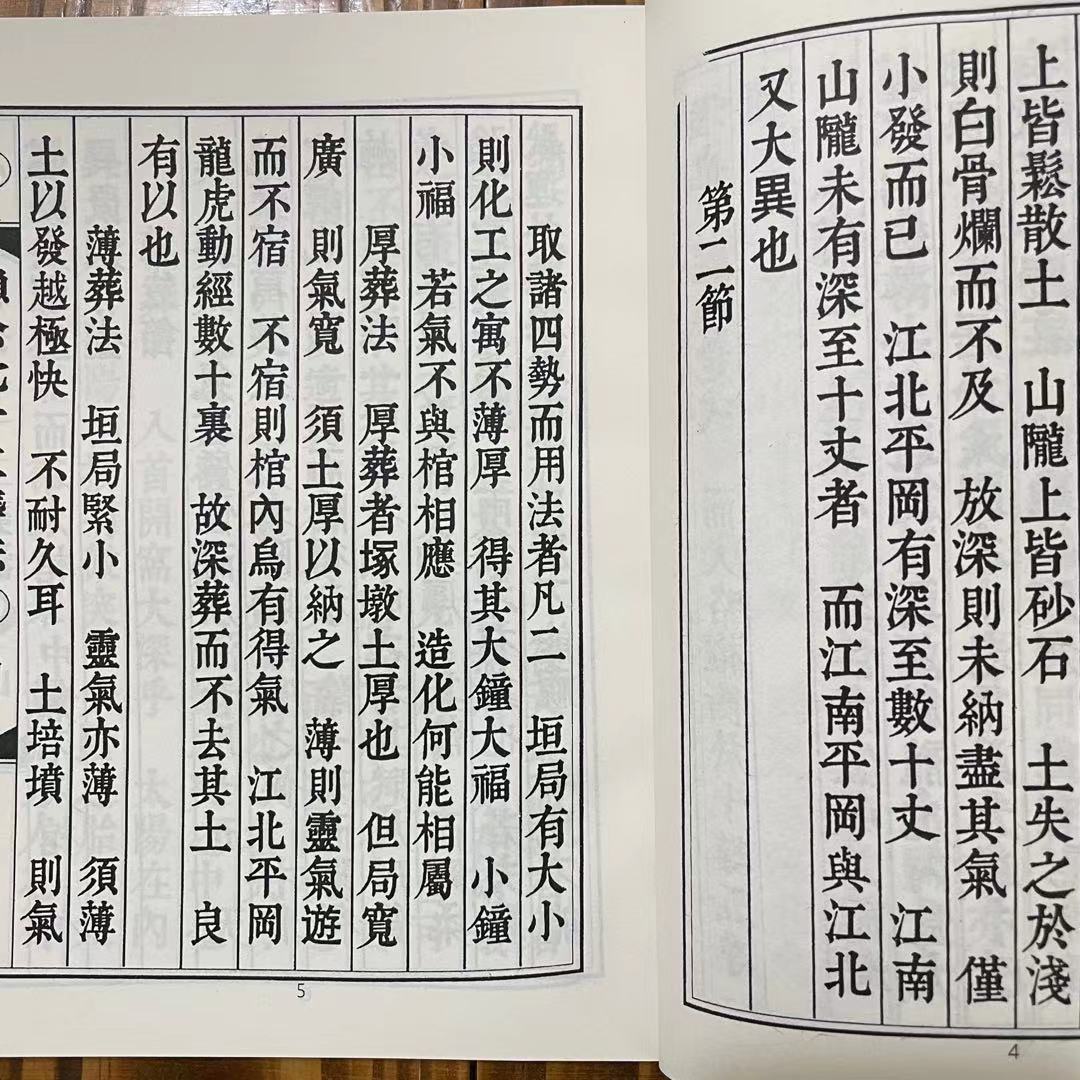 上皆鬆散土 山隴上皆砂石 土失之於淺
則白骨爛而不及 放深則未納盡其氣 僅
小發而已 江北平岡有深至數十丈 江南
山隴未有深至十丈者 而江南平岡與江北
又大異也
第二節
4
取諸四勢而用法者凡二 垣局有大小
則化工之寓不薄厚 得其大鐘大福 小鐘
小福 若氣不與棺相應 造化何能相屬
厚葬法 厚葬者塚墩土厚也 但局寬
廣 則氣寬 須土厚以納之 薄則靈氣遊
而不宿 不宿則棺內烏有得氣 江北平岡
龍虎動經數十裏 故深葬而不去其土 良
有以也
薄葬法 垣局緊小 靈氣亦薄 須薄
土以發越極快 而不耐久耳 土培墳 則氣
5